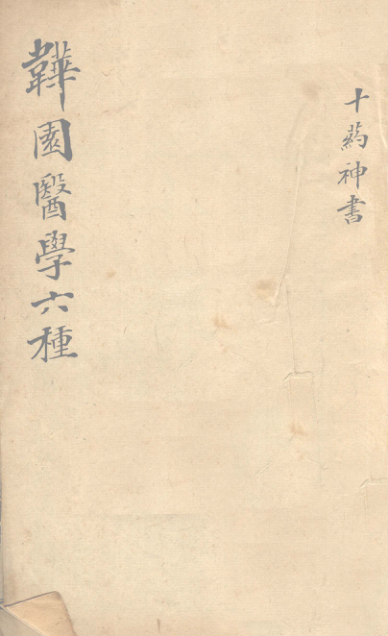 十葯神書
韡園醫學六種